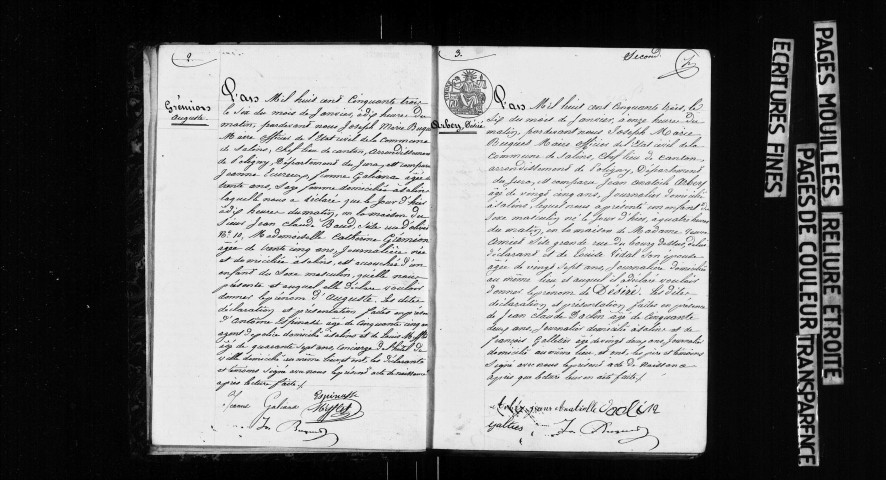 2.
Grémion
Auguste.
L'an Mil huit cent Cinquante trois
le Six du mois de Janvier, à dix heures du
matin, pardevant nous Joseph Marie Buguet
Maire officier de l'Etat civil de la Commune
de Salins, chef lieu de canton, arrondissement
de Poligny, Département du Jura, est comparue
Jeanne femme Galiana âgée de
trente ans, Sage femme domiciliée à Salins
laquelle nous a déclaré que le jour d'hier
à dix heures du matin, en la maison du
Sieur Jean Claude Baud, Site rue
N° 10, Mademoiselle Catherine Grémion
âgée de trente cinq ans, Journalière née
et domiciliée à Salins, est accouchée d'un
enfant du Sexe masculin, qu'elle nous
présente et auquel elle déclare vouloir
donner le prénom d'Auguste. Les dites
déclaration et présentation faites en présence
d'Antoine Espinasse âgé de Cinquante cinq ans
agent de police domicilié à Salins et de Louis
âgé de quarante Sept ans, Concierge de l'hôtel de
Ville domicilié au même lieu, et ont, les déclarante
et témoins Signé avec nous le présent acte de naissance
après lecture faite /.
Espinasse
Jeanne Galiana
Jos Buguet
3.
Second
Arbey, Désiré
L'an Mil huit cent Cinquante trois, le
dix du mois de Janvier, à onze heures du
matin, pardevant nous Joseph Marie
Buguet Maire officier de l'Etat civil de la
Commune de Salins, Chef lieu de canton
arrondissement de Poligny, Département
du Jura, est comparu Jean Anatoile Arbey
âgé de vingt cinq ans, Journalier domicilié
à Salins, lequel nous a présenté un enfant du
Sexe masculin né le jour d'hier, à quatre heures
du matin, en la maison de Madame Veuve
Site grande rue du bourg dessus, de lui
déclarant et de Louise Vidal Son épouse
âgée de vingt Sept ans, Journalière domiciliée
au même lieu et auquel il a déclaré vouloir
donner le prénom de Désiré. Les dites
déclaration et présentation faites en présence
de Jean Claude âgé de Cinquante
deux ans, Journalier domicilié à Salins et de
François âgé de vingt deux ans, Journalier
domicilié au même lieu, et ont, les père et témoins
Signé avec nous le présent acte de naissance
après que lecture leur en a été faite /.
Arbey Jean Anatoille
Jos Buguet
PAGES MOUILLEES RELIURE ETROITE
ECRITURES FINES
PAGES DE COULEUR TRANSPARENCE